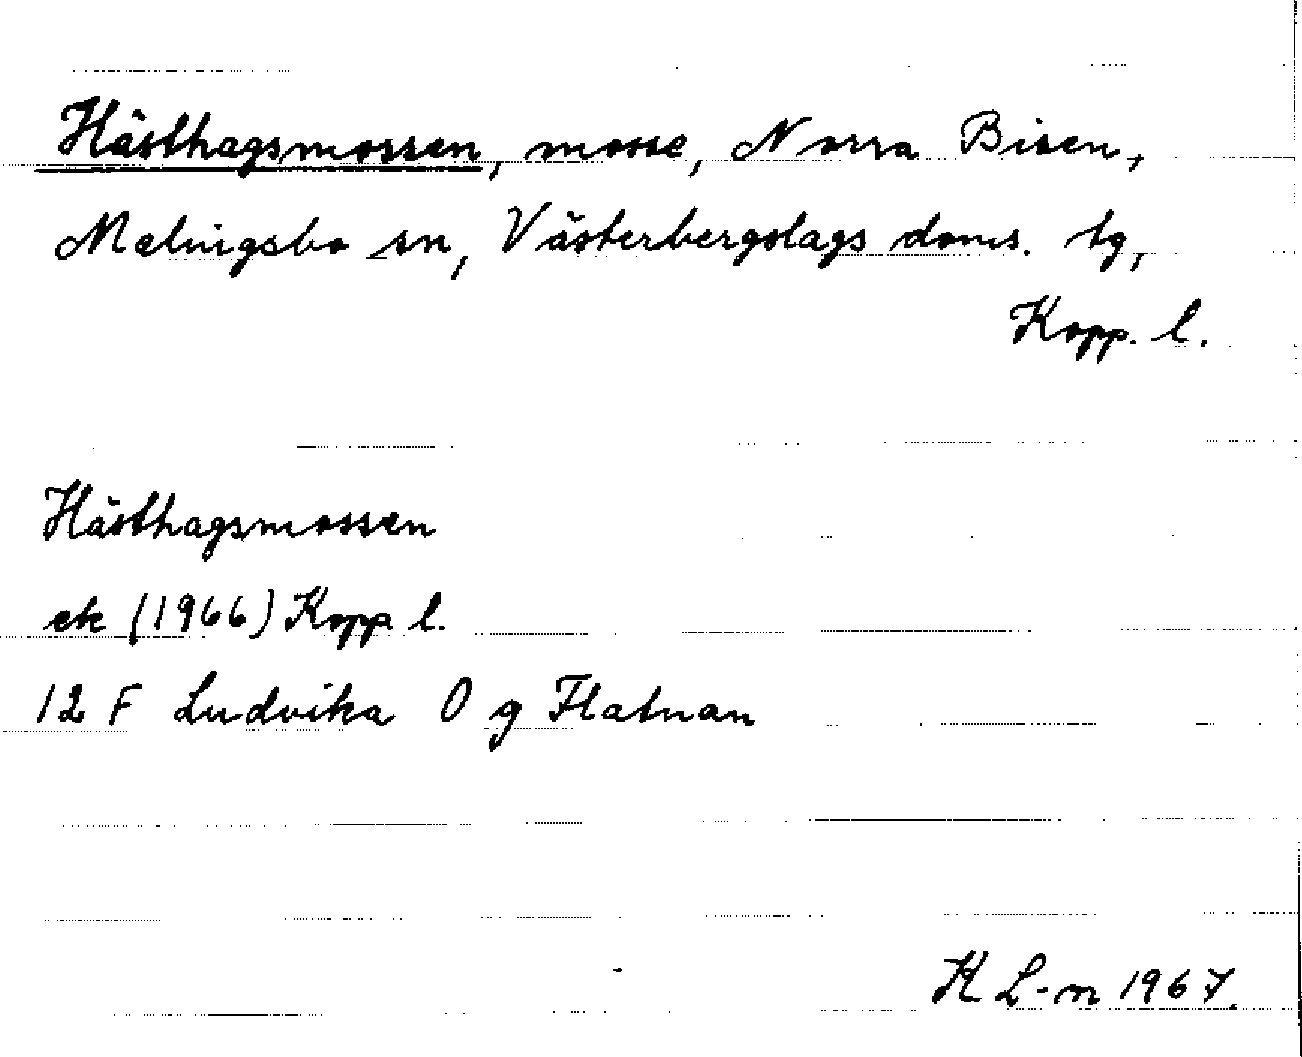 Hästhagsmossen, mosse, Norra Bisen,
Malingsbo sn, Västerbergslags doms. tg,
Kopp. l.
Hästhagsmossen
ek (1966) Kopp l.
12 F Ludvika O g Flatnan
K L-n 1967.